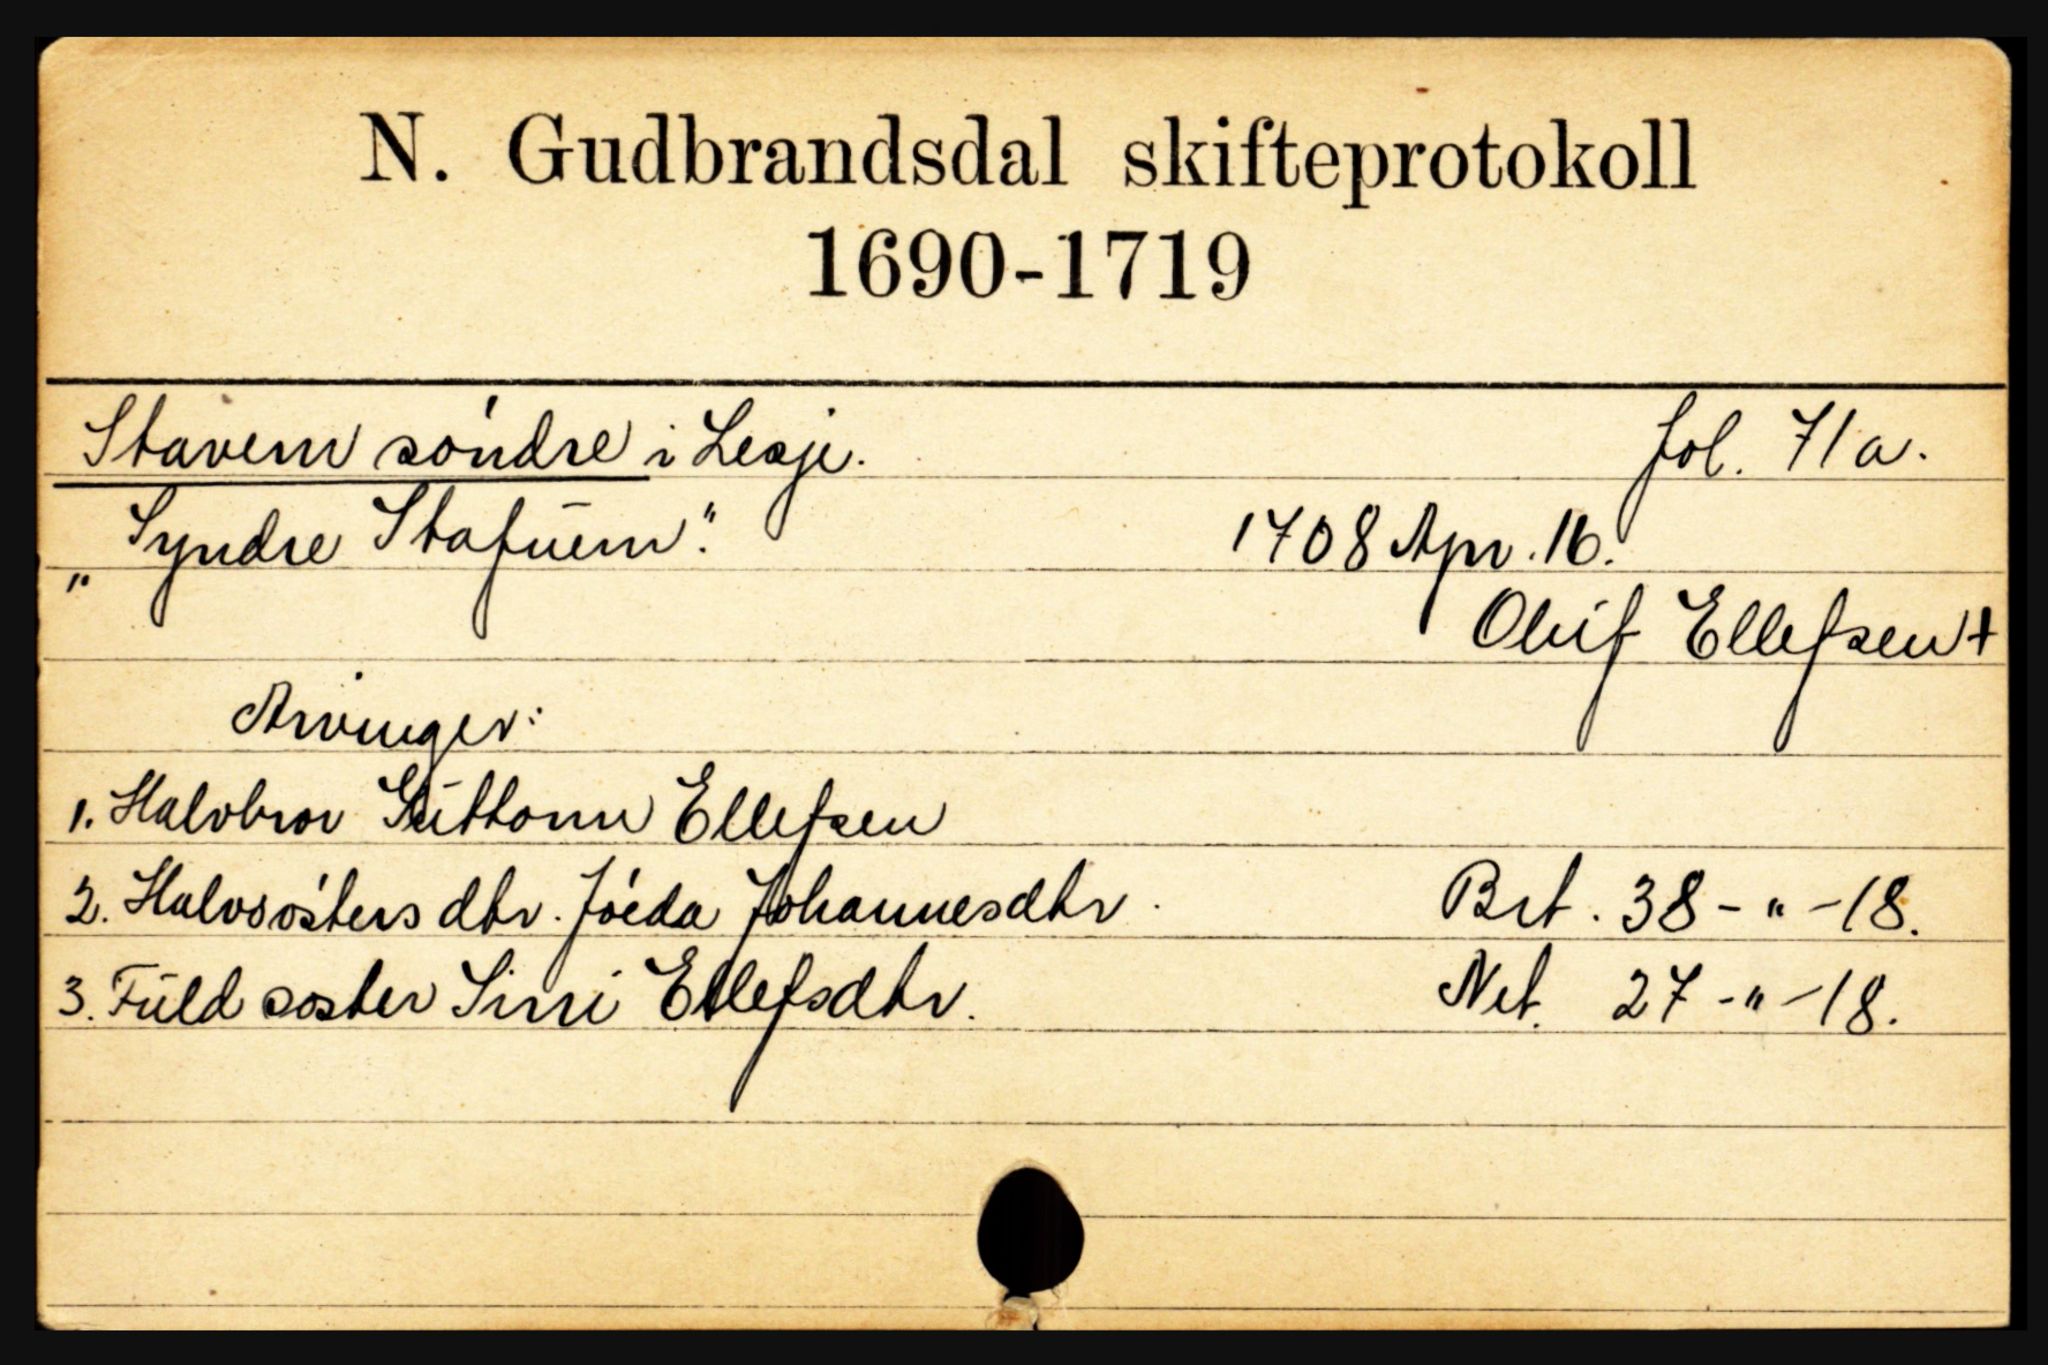 N. Gudbrandsdal skifteprotokoll
1690-1719
Stavem söndre i Lesje. fol. 71a.
„Syndre Stafuem". 1708 Apr. 16.
Oluf Ellefsen +
Arvinger:
1. Halvbror Guttorm Ellefsen
2. Halvsösters dtr. Jöeda Johannesdtr. Brt. 38-"-18.
3. Fuld søster Sirri Ellefsdtr. Net. 27-"-18.